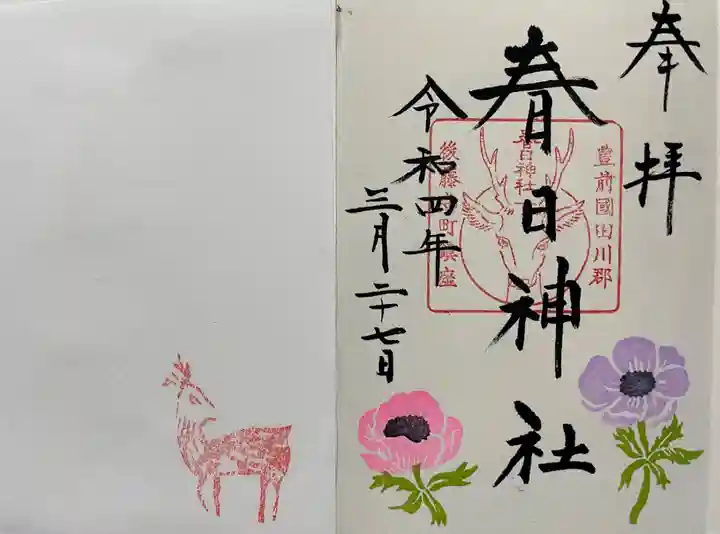 奉拝
春日神社
令和四年
三月二十七日
豊前國田川郡
春日神社
後藤
町
座